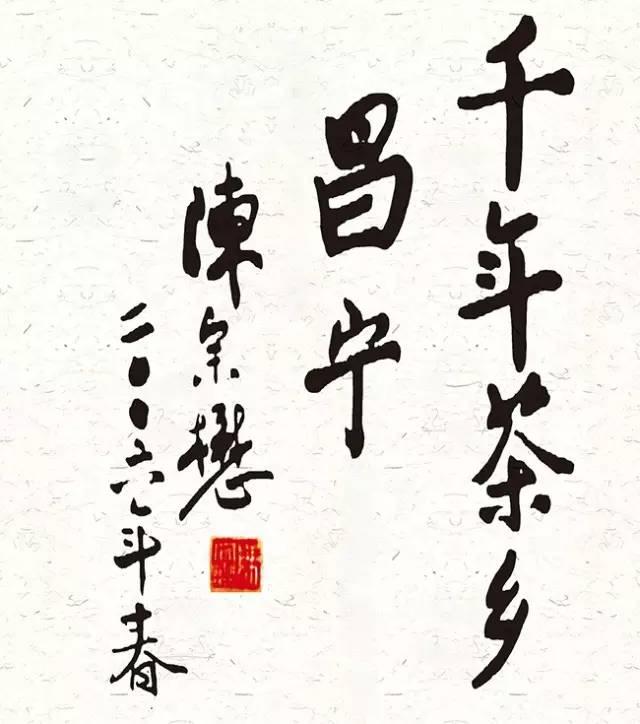 千年茶乡
昌宁
陳宗懋
二〇〇六年春